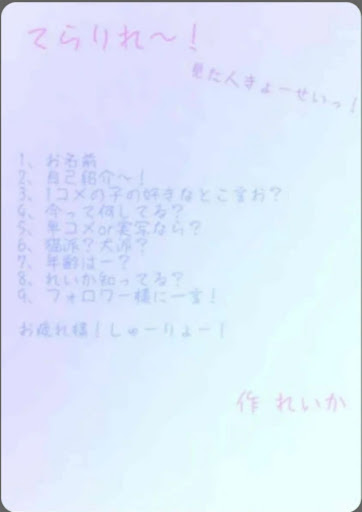 てらりれ～！
見た人きょーせいっ！
1、お名前
2、自己紹介～！
3、1コメの子の好きなとこ言お？
4、今って何してる？
5、単コメor実写なら？
6、猫派？犬派？
7、年齢はー？
8、れいか知ってる？
9、フォロワー様に一言！
お疲れ様！しゅーりょー！
作 れいか